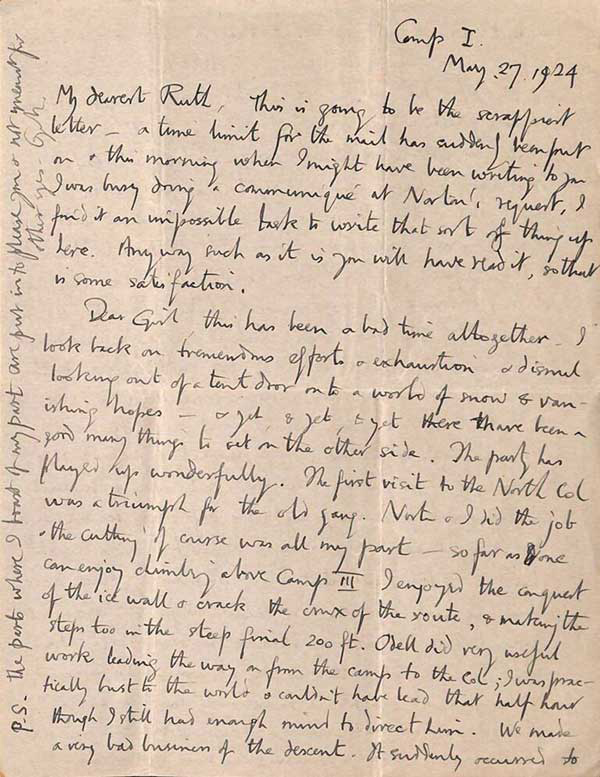 Camp I.
May. 27. 1924
My dearest Ruth, This is going to be the scrappiest
letter – a time limit for the mail has suddenly been put
on & this morning when I might have been writing to you
I was busy doing a communiqué at Norton's request, I
find it an impossible task to write that sort of thing up
here. Anyway such as it is you will have read it, so that
is some satisfaction.
Dear Girl, this has been a bad time altogether – I
look back on tremendous efforts & exhaustion & dismal
looking out of a tent door on to a world of snow & van-
ishing hopes – & yet, & yet, & yet there have been a
good many things to set on the other side. The party has
played up wonderfully. The first visit to the North Col
was a triumph for the old gang. Norton & I did the job
& the cutting of course was all my part – so far as one
can enjoy climbing above Camp III I enjoyed the conquest
of the ice wall & crack the crux of the route, & making the
steps too in the steep final 200 ft. Odell did very useful
work leading the way on from the camp to the Col; I was prac-
tically bust to the world & couldn't have lead that half hour
though I still had enough mind to direct him. We made
a very bad business of the descent. It suddenly occurred to
P.S. The parts where I boast of my part are put in to please you & not meant for
other eyes – G.M.